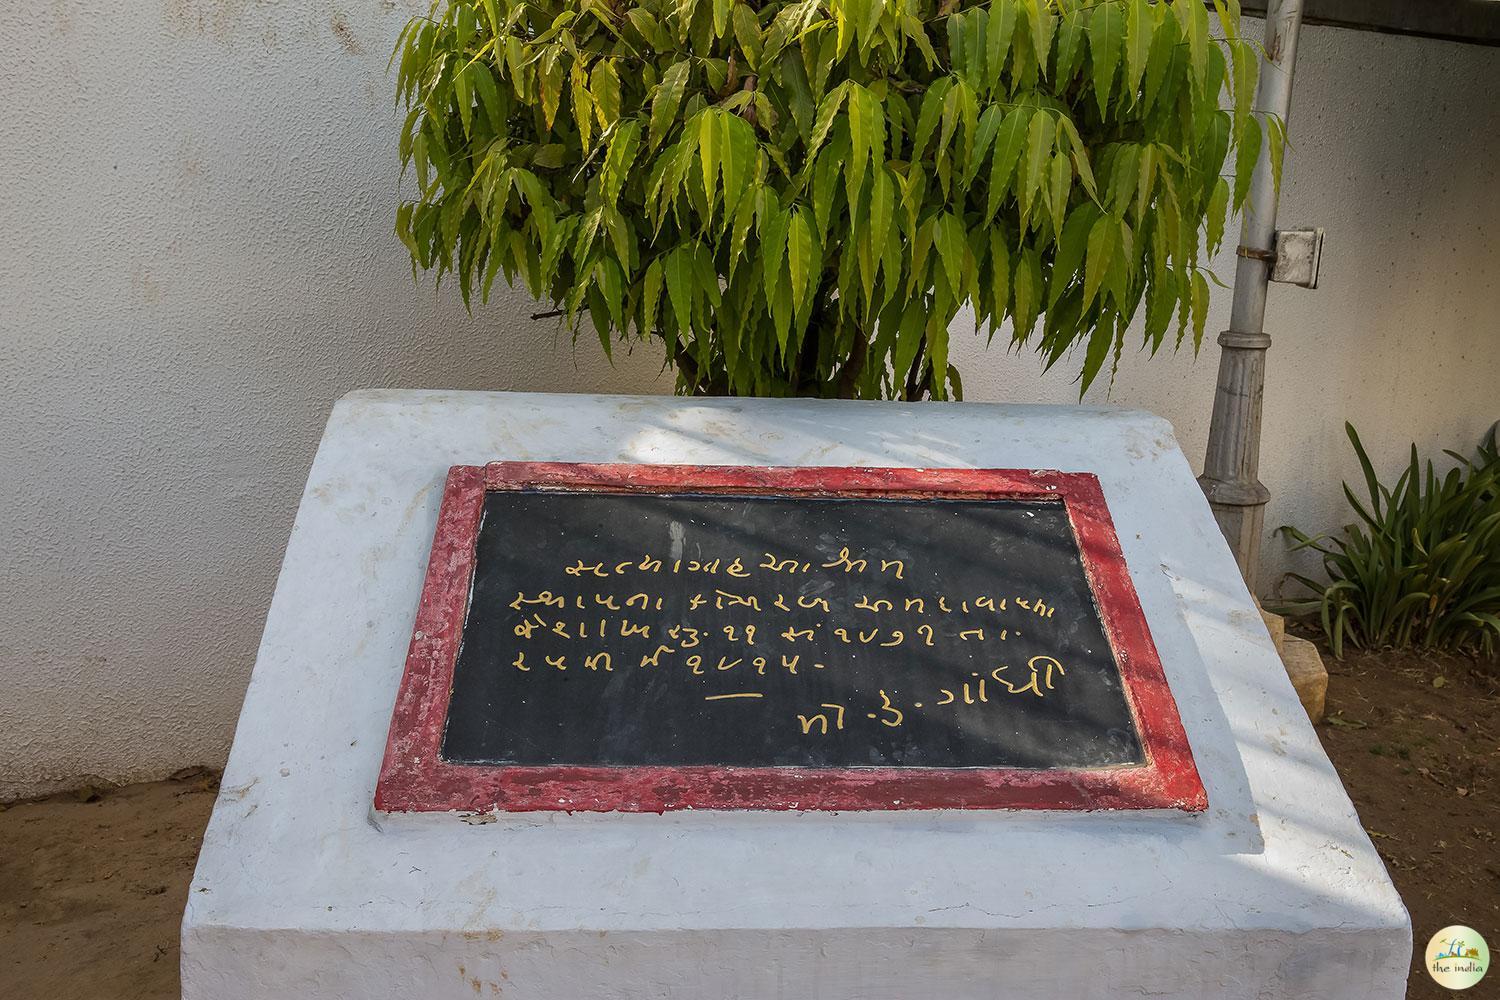 સત્યાગ્રહ આશ્રમ
સ્થાપના કોચરબ અમદાવાદ
વૈશાખ સુ. ૧૧ સં ૧૯૭૧ તા.
૨૫ મી મે ૧૯૧૫.
મો. ક. ગાંધી
the india